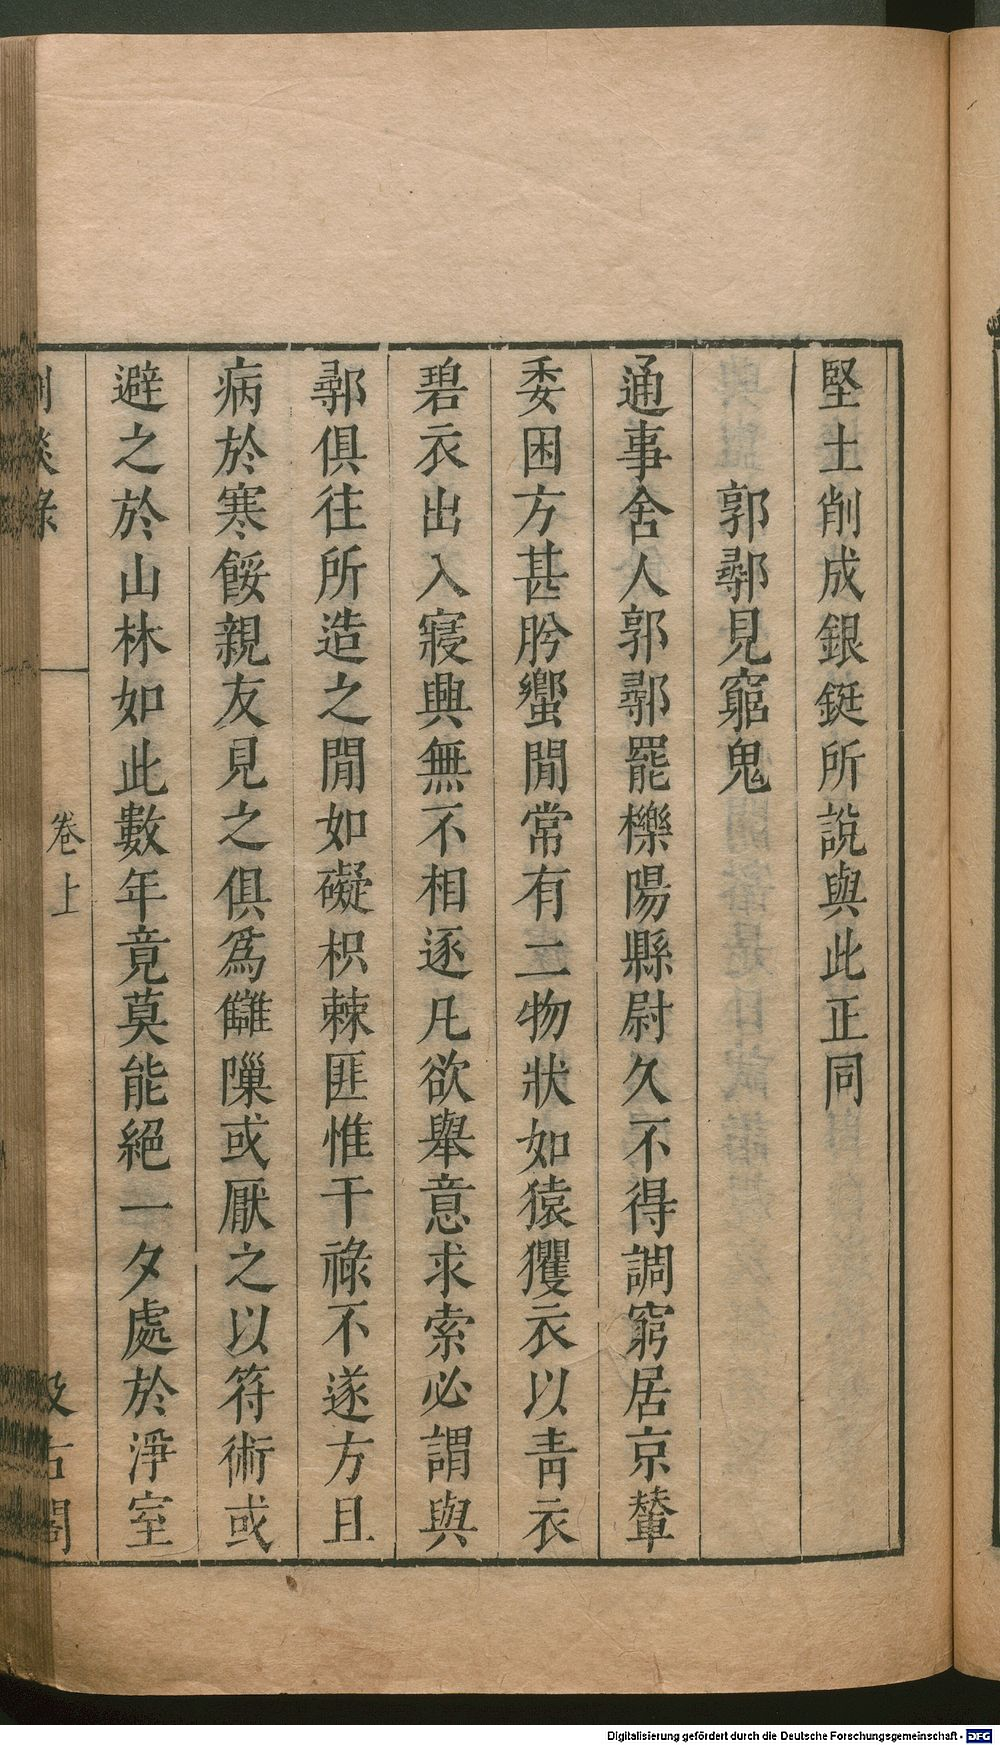 堅土削成銀鋌所說與此正同
郭鄩見窮鬼
通事舍人郭鄩罷櫟陽縣尉久不得調窮居京輦
委困方甚肸蠁閒常有二物狀如猿玃衣以靑衣
碧衣出入寢興無不相逐凡欲舉意求索必謂與
鄩俱往所造之閒如礙枳棘匪惟干祿不遂方且
病於寒餒親友見之俱爲讎隟或厭之以符術或
避之於山林如此數年竟莫能絕一夕處於淨室
劇談錄
卷上
汲古閣
Digitalisierung gefördert durch die Deutsche Forschungsgemeinschaft - DFG